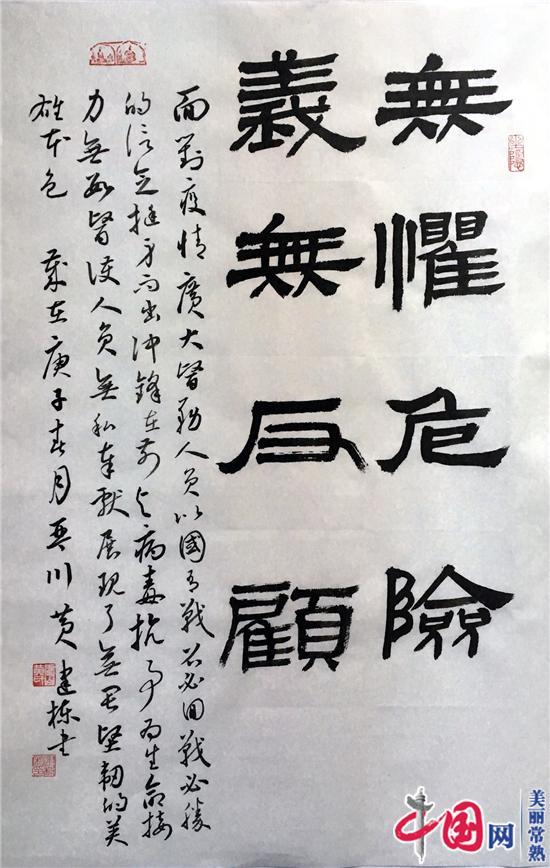 無懼危險
義無反顧
面對疫情廣大醫務人員以國有戰召必回戰必勝
的信念挺身而出沖鋒在前與病毒抗爭為生命接
力無數醫護人員無私奉獻展現了無畏堅韌的英
雄本色 歲在庚子春月琴川黃建棟書
中国网
美丽常熟